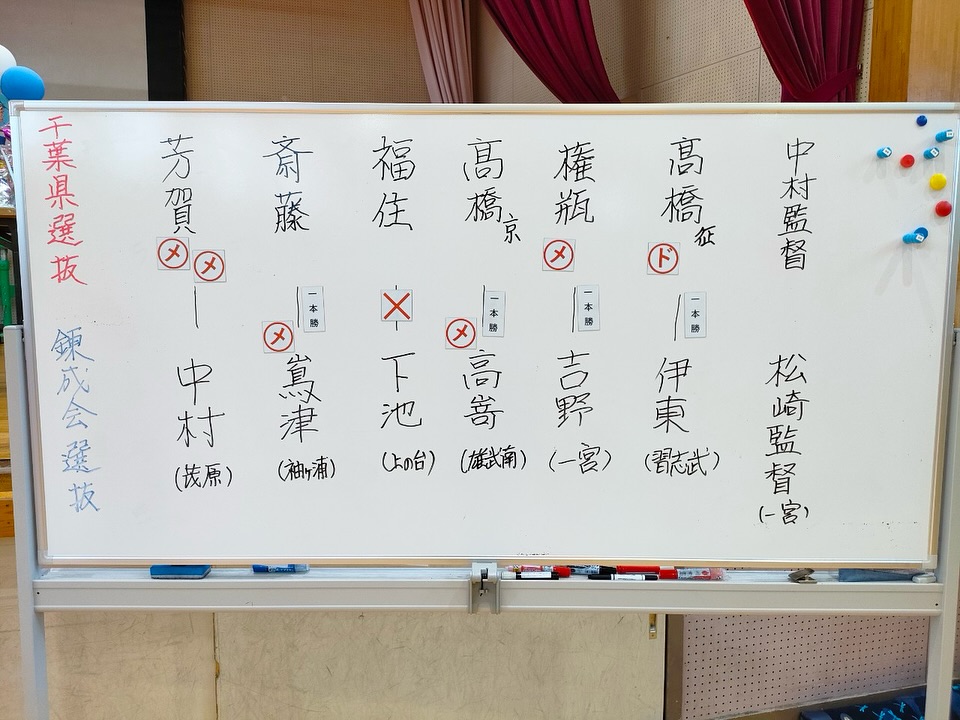 千葉県選抜
芳賀
斎藤
福住
髙橋京
権瓶
髙橋征
中村監督
メ
メ
メ
ド
一本勝
一本勝
一本勝
一本勝
メ
メ
錬成会選抜
中村
(茂原)
嶌津
(袖ヶ浦)
下池
(上の台)
高嵜
(雄武南)
吉野
(一宮)
伊東
(習志武)
松崎監督
(一宮)